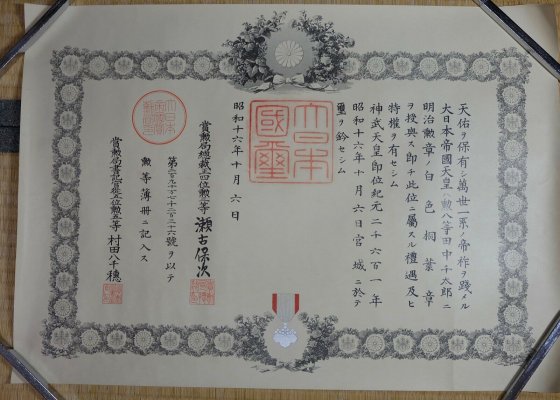 天佑ヲ保有シ萬世一系ノ帝祚ヲ踐メル
大日本帝國天皇ハ勲八等田中千太郎ニ
明治勲章ノ白色桐葉章
ヲ授與ス即チ此位ニ屬スル禮遇及ヒ
特權ヲ有セシム
神武天皇即位紀元二千六百一年
昭和十六年十月六日宮城ニ於テ
璽ヲ鈐セシム
大日本
國璽
昭和十六年十月六日
賞勲局總裁正四位勲二等 瀬古保次
第二百九十万七千二百三十六號ヲ以テ
勲等簿冊ニ記入ス
賞勲局書記官從五位勲五等 村田八千穂